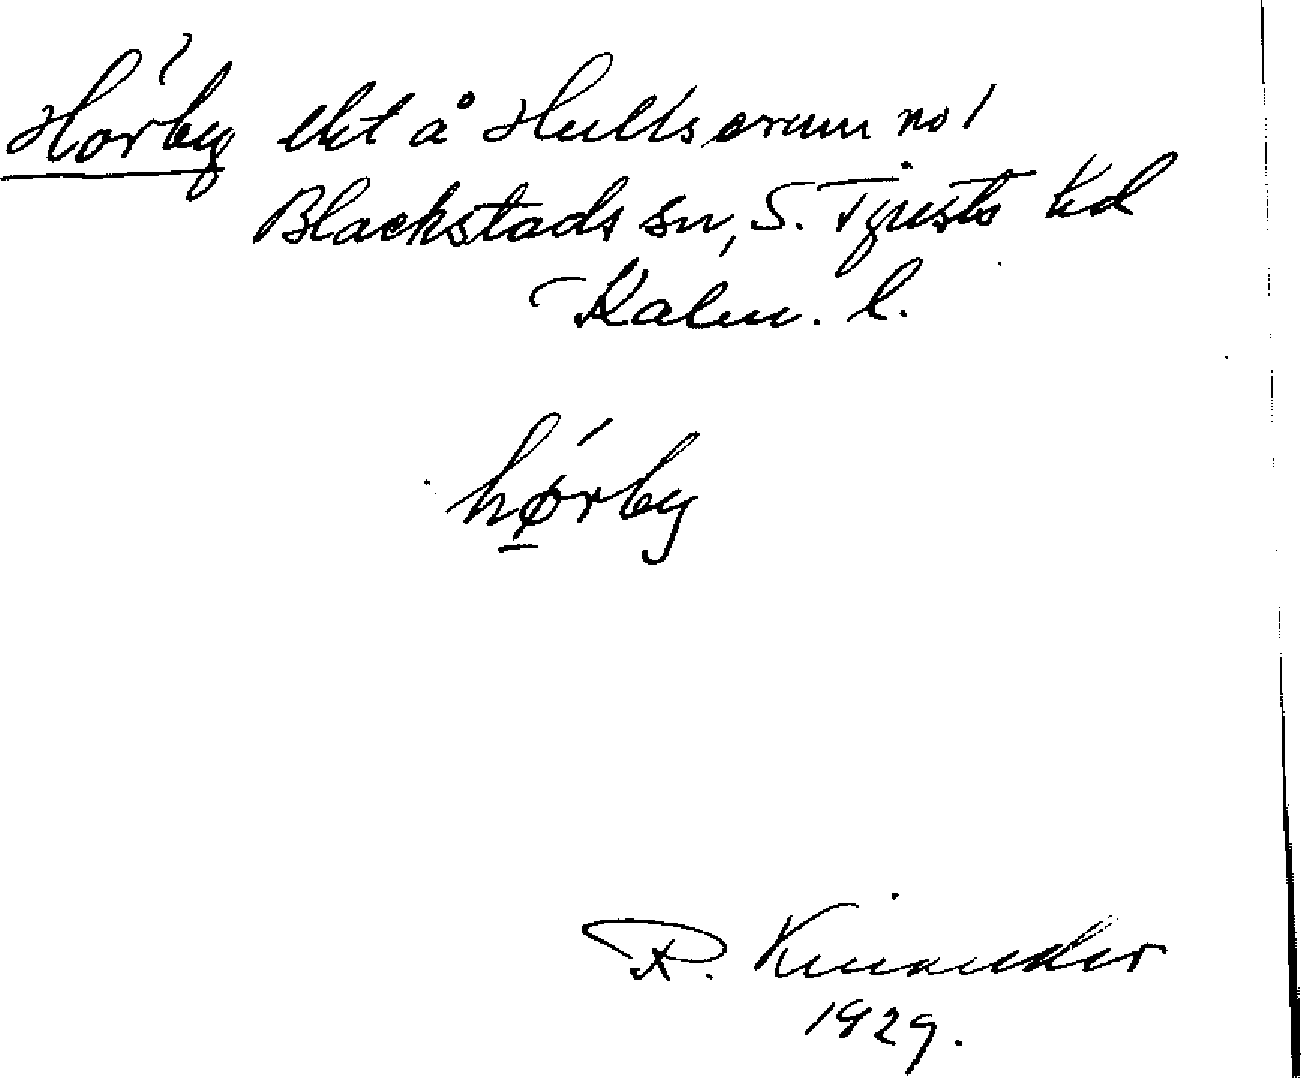 Hörby lht å Hullserum no 1
Blackstads sn, S. Tjusts hd
Kalm. l.
hørby
R. Kinander
1929.